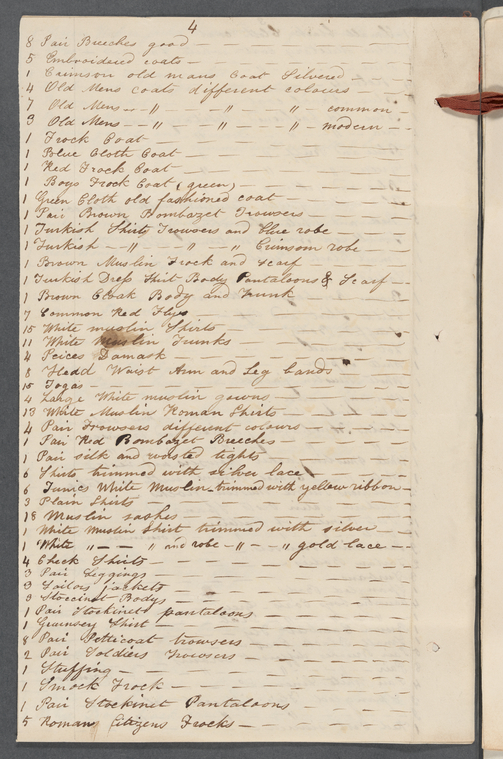 4
8 Pair Breeches good —
5 Embroidered coats —
1 Crimson old mans Coat Silvered
4 Old Mens coats different colours
7 Old Mens — " " " common
3 Old Mens — " " " modern
1 Frock Coat —
1 Blue Cloth Coat —
1 Red Frock Coat —
1 Boys Frock Coat (green)
1 Green Cloth old fashioned coat
1 Pair Brown Bombazet Trowsers
1 Turkish Shirt Trowsers and blue robe
1 Turkish — " — " — " Crimson robe
1 Brown Muslin Frock and Scarf
1 Turkish Dress Shirt Body Pantaloons & Scarf
1 Brown Cloak Body and Trunk
7 Common Red Flys
15 White muslin Shirts
11 White Muslin Trunks —
4 Peices Damask
8 Head Waist Arm and Leg bands
15 Togas —
4 Large White muslin gowns
13 White Muslin Roman Shirts —
4 Pair Trowsers different colours —
1 Pair Red Bombazet Breeches
1 Pair silk and worsted tights
6 Shirts trimmed with silver lace
6 Tunics White Muslin trimmed with yellow ribbon
3 Plain Shirts
18 Muslin sashes
1 White Muslin Shirt trimmed with silver
1 White " — — " and robe — " — — " gold lace
4 Check Shirts —
3 Pair Leggings
3 Sailors jackets
3 Stoccinet Bodys
1 Pair Stockinet pantaloons —
1 Guernsey Shirt
8 Pair Petticoat trowsers
2 Pair Soldiers Trowsers —
1 Stuffing —
1 Smock Frock —
1 Pair Stockinet Pantaloons
5 Roman Citizens Frocks —